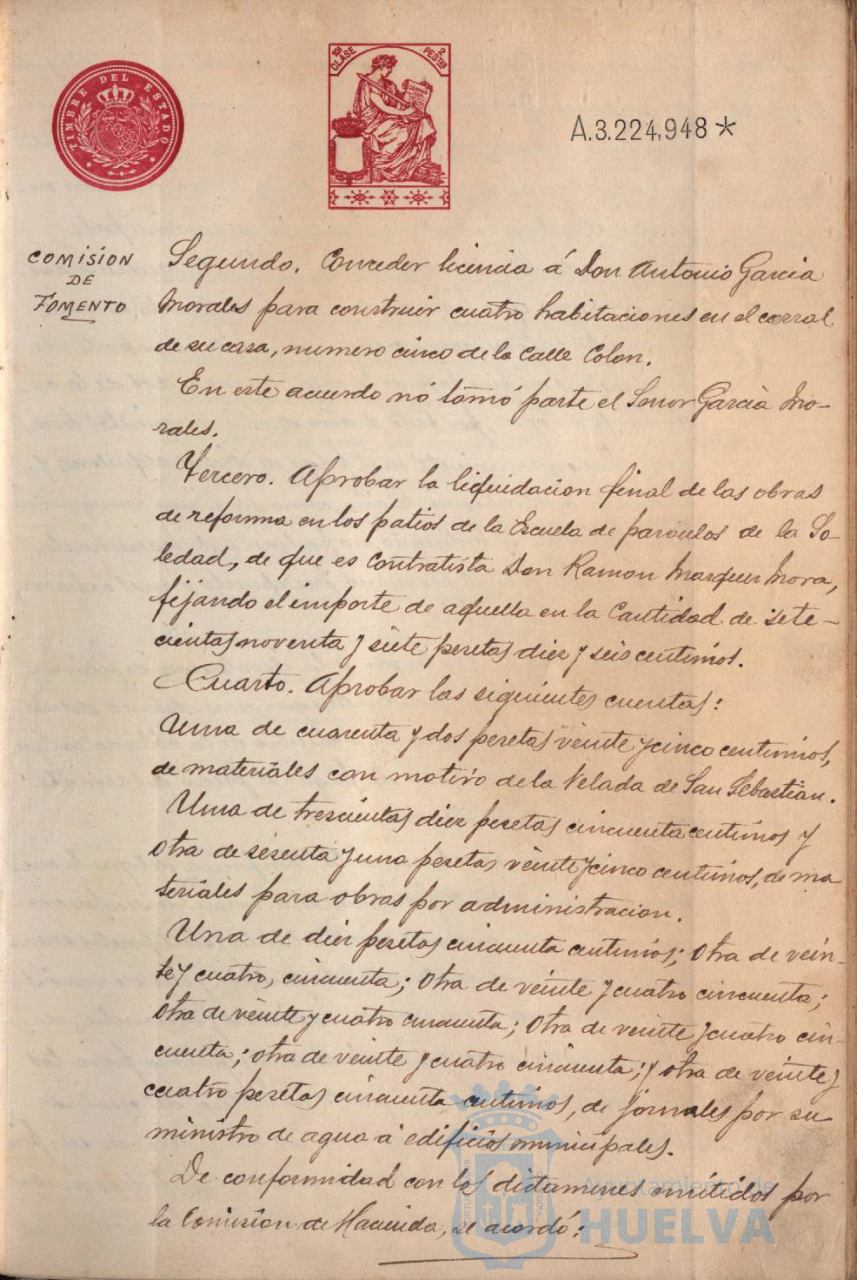 TIMBRE DEL ESTADO
10ª CLASE 2 PESTAS
A.3.224,948*
COMISIÓN
DE
FOMENTO
Segundo. Conceder licencia á Don Antonio Garcia
Morales para construir cuatro habitaciones en el corral
de su casa, numero cinco de la Calle Colon.
En este acuerdo nó tomó parte el Señor Garcia Mo-
rales.
Tercero. Aprobar la liquidacion final de las obras
de reforma en los patios de la Escuela de parvulos de la So-
ledad, de que es Contratista Don Ramon Marquez Mora,
fijando el importe de aquella en la Cantidad de sete-
cientas noventa y siete pesetas diez y seis centimos.
Cuarto. Aprobar las siguientes cuentas:
Una de cuarenta y dos pesetas veinte y cinco centimos,
de materiales con motivo de la Velada de San Sebastian.
Una de trescientas diez pesetas cincuenta centimos y
otra de sesenta y una pesetas veinte y cinco centimos, de ma
teriales para obras por administracion.
Una de diez pesetas cincuenta centimos; otra de vein-
te y cuatro, cincuenta; otra de veinte y cuatro cincuenta;
otra de veinte y cuatro cincuenta; otra de veinte y cuatro cin-
cuenta; otra de veinte y cuatro cincuenta; y otra de veinte y
cuatro pesetas cincuenta centimos, de jornales por su
ministro de agua á edificios municipales.
De conformidad con los dictamenes emitidos por
la Comision de Hacienda, se acordó:
Ayuntamiento de
HUELVA